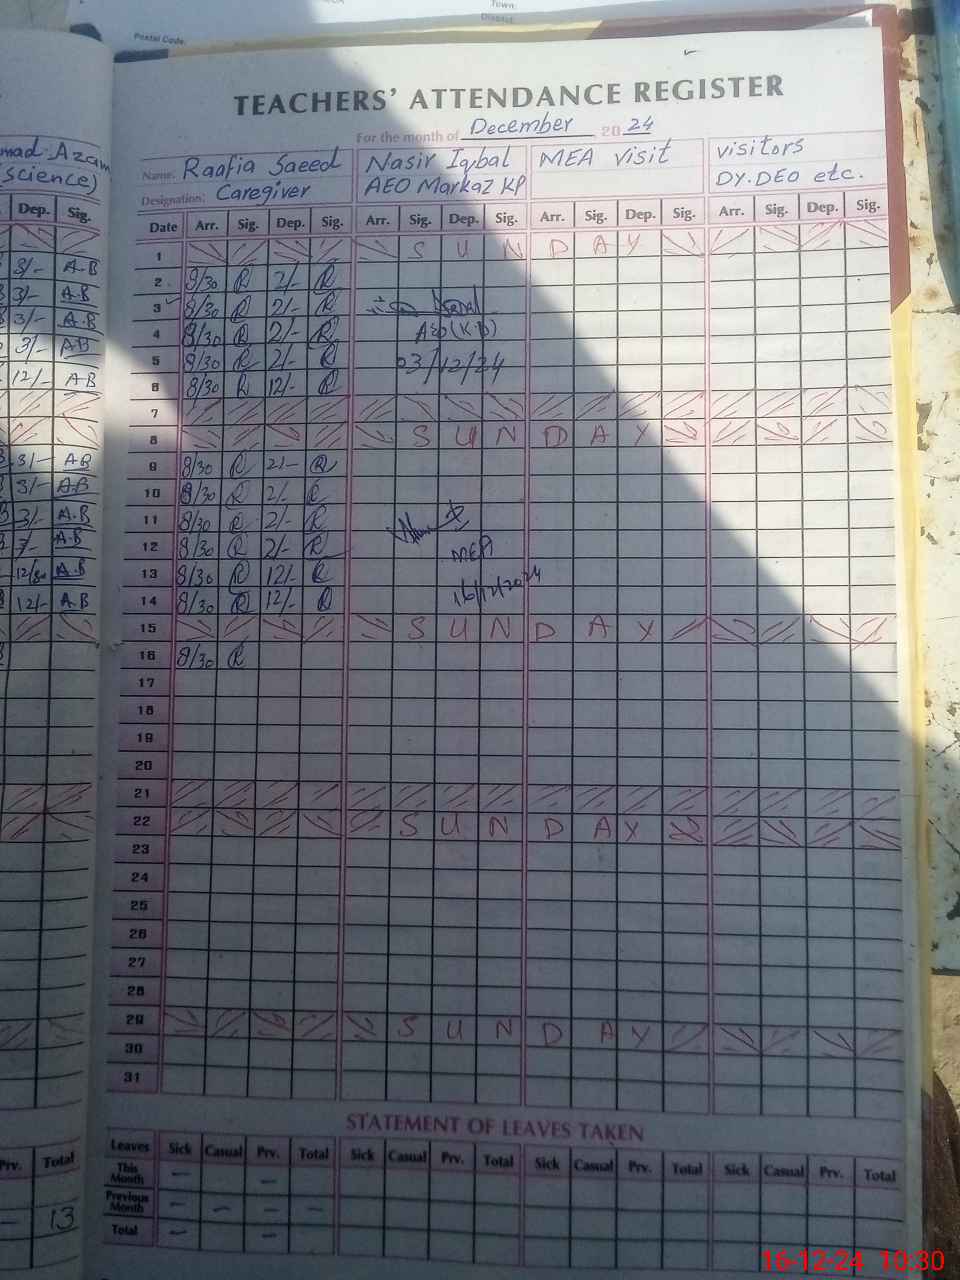 Town:
District:
Postal Code:
TEACHERS' ATTENDANCE REGISTER
For the month of December 2024
mad Azam
(science)
Name: Raafia Saeed
Designation: Caregiver
Nasir Iqbal
AEO Markaz KP
MEA visit
visitors
DY.DEO etc.
Dep. Sig.
Date Arr. Sig. Dep. Sig. Arr. Sig. Dep. Sig. Arr. Sig. Dep. Sig. Arr. Sig. Dep. Sig.
1 SUNDAY
3/- A-B 2 8/30 R 2/- R
3/- A.B 3 8/30 R 2/- R
3/- A.B 4 8/30 R 2/- R AEO(KP)
3/- AB 5 8/30 R 2/- R 03/12/24
12/- AB 6 8/30 R 12/- R
7
8 SUNDAY
3/- AB 9 8/30 R 2/- R
3/- A-B 10 8/30 R 2/- R
3/- A.B 11 8/30 R 2/- R
3/- A.B 12 8/30 R 2/- R MEA
12/30 A.B 13 8/30 R 12/- R 16/12/2024
12/- A.B 14 8/30 R 12/- R
15 SUNDAY
16 8/30 R
17
18
19
20
21
22 SUNDAY
23
24
25
26
27
28
29 SUNDAY
30
31
STATEMENT OF LEAVES TAKEN
Prv. Total
Leaves Sick Casual Prv. Total Sick Casual Prv. Total Sick Casual Prv. Total Sick Casual Prv. Total
This Month — —
Previous Month — — — —
— 13
Total — —
16-12-24 10:30